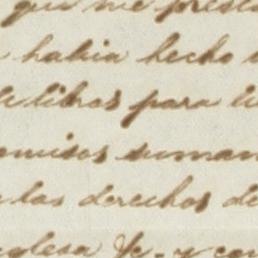 que me presta
habia hecho
libros para
omisos suman
las derechos de
glesa &c - y con